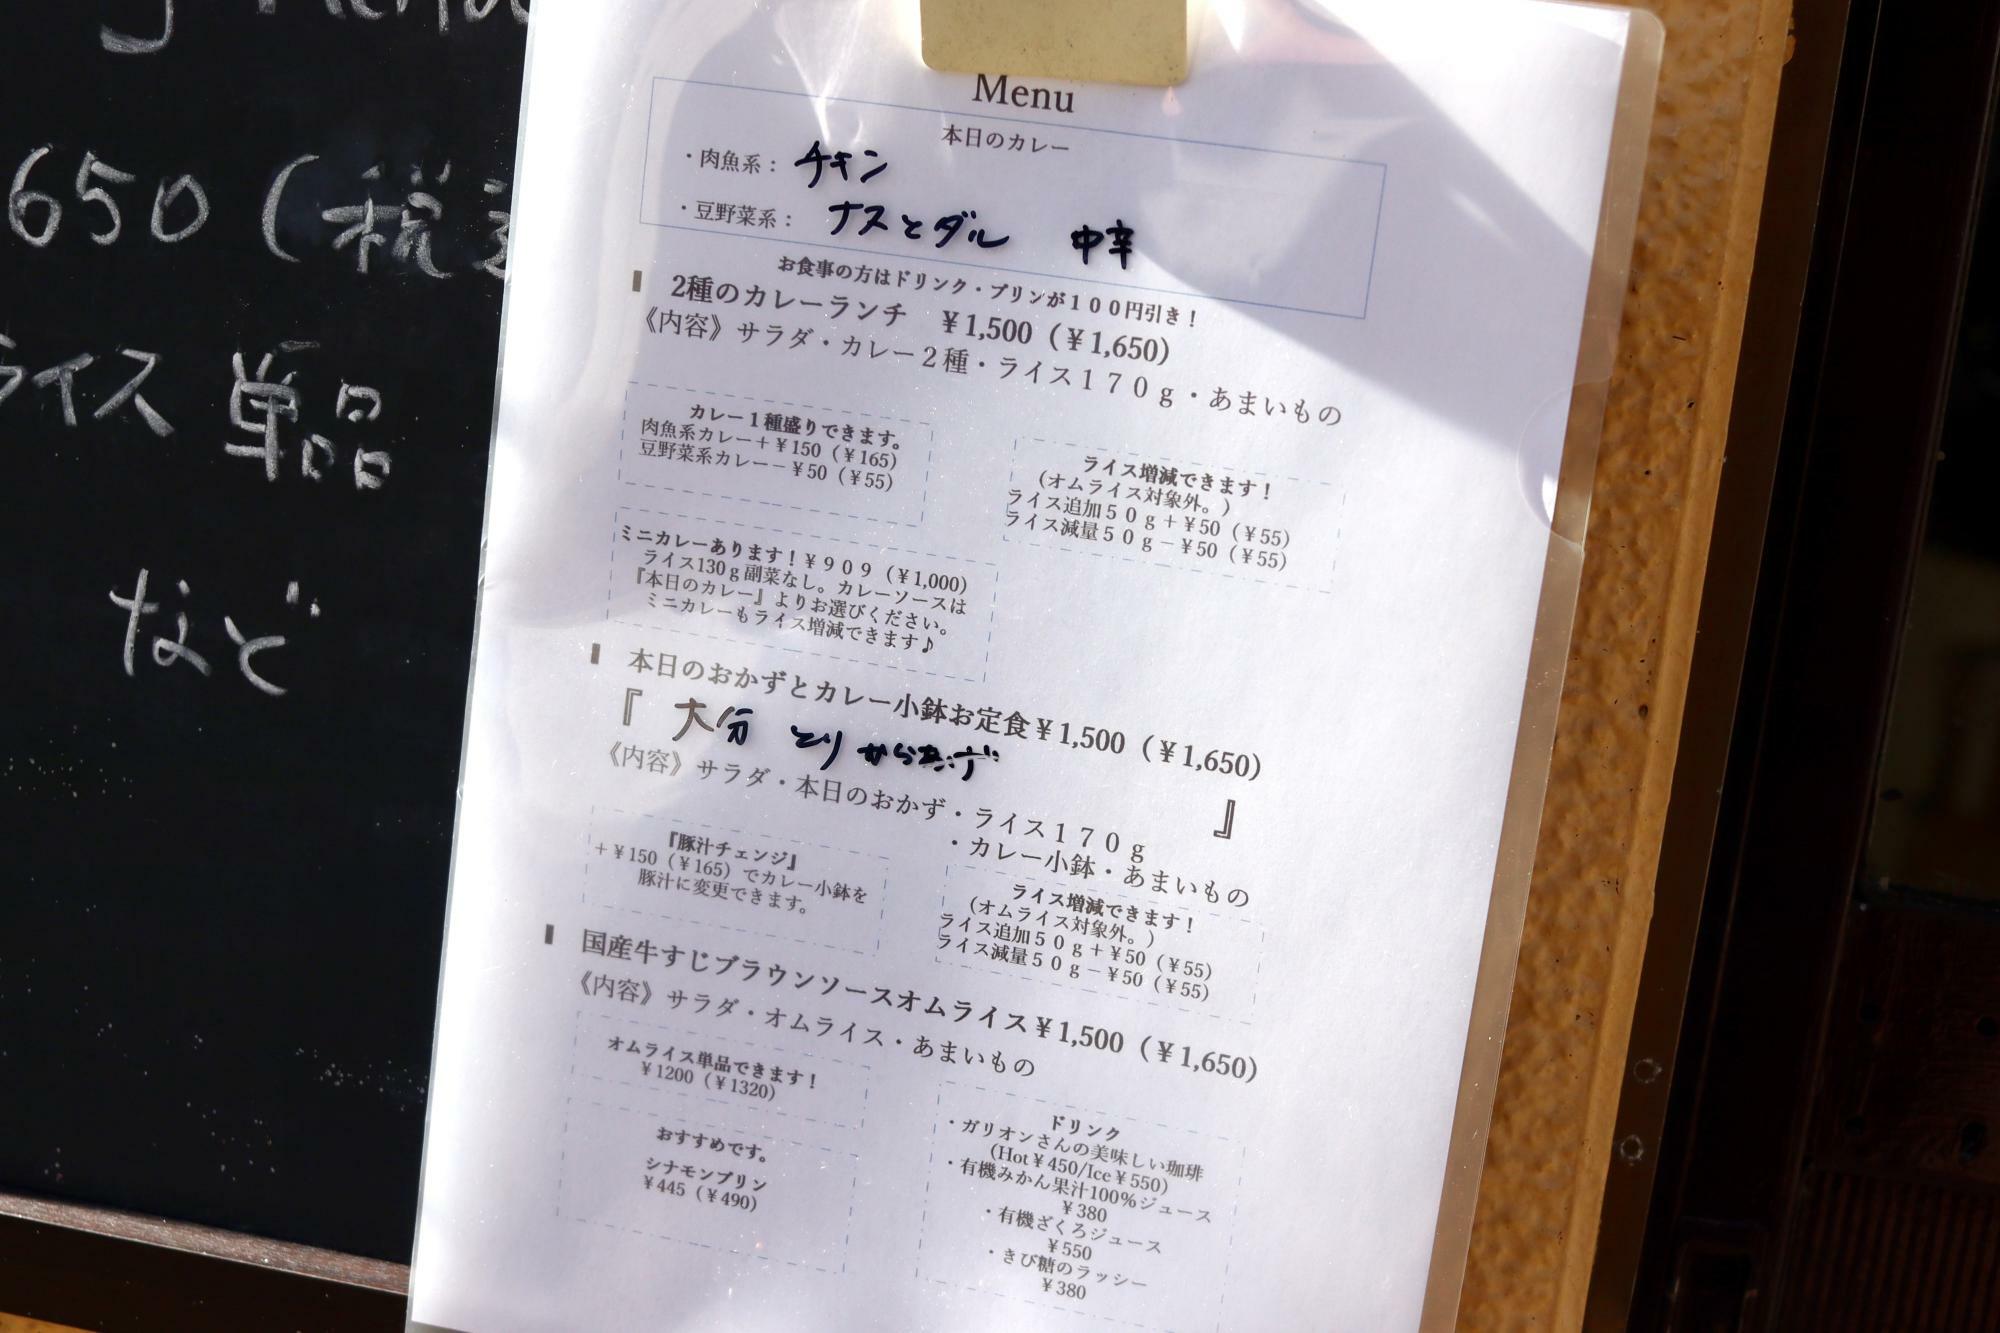 650(税
ライス 単品
など
Menu
本日のカレー
・肉魚系： チキン
・豆野菜系： ナスとダル 中辛
お食事の方はドリンク・プリンが１００円引き！
2種のカレーランチ ￥1,500（￥1,650）
《内容》サラダ・カレー２種・ライス１７０ｇ・あまいもの
カレー１種盛りできます。
肉魚系カレー＋￥150（￥165）
豆野菜系カレー－￥50（￥55）
ライス増減できます！
（オムライス対象外。）
ライス追加５０ｇ＋￥50（￥55）
ライス減量５０ｇ－￥50（￥55）
ミニカレーあります！￥９０９（￥1,000）
ライス130ｇ副菜なし。カレーソースは
『本日のカレー』よりお選びください。
ミニカレーもライス増減できます♪
本日のおかずとカレー小鉢お定食￥1,500（￥1,650）
『 大分 とりからあげ 』
《内容》サラダ・本日のおかず・ライス１７０ｇ
・カレー小鉢・あまいもの
『豚汁チェンジ』
＋￥150（￥165）でカレー小鉢を
豚汁に変更できます。
ライス増減できます！
（オムライス対象外。）
ライス追加５０ｇ＋￥50（￥55）
ライス減量５０ｇ－￥50（￥55）
国産牛すじブラウンソースオムライス￥1,500（￥1,650）
《内容》サラダ・オムライス・あまいもの
オムライス単品できます！
￥1200（￥1320）
おすすめです。
シナモンプリン
￥445（￥490）
ドリンク
・ガリオンさんの美味しい珈琲
（Hot￥450/Ice￥550）
・有機みかん果汁100％ジュース
￥380
・有機ざくろジュース
￥550
・きび糖のラッシー
￥380